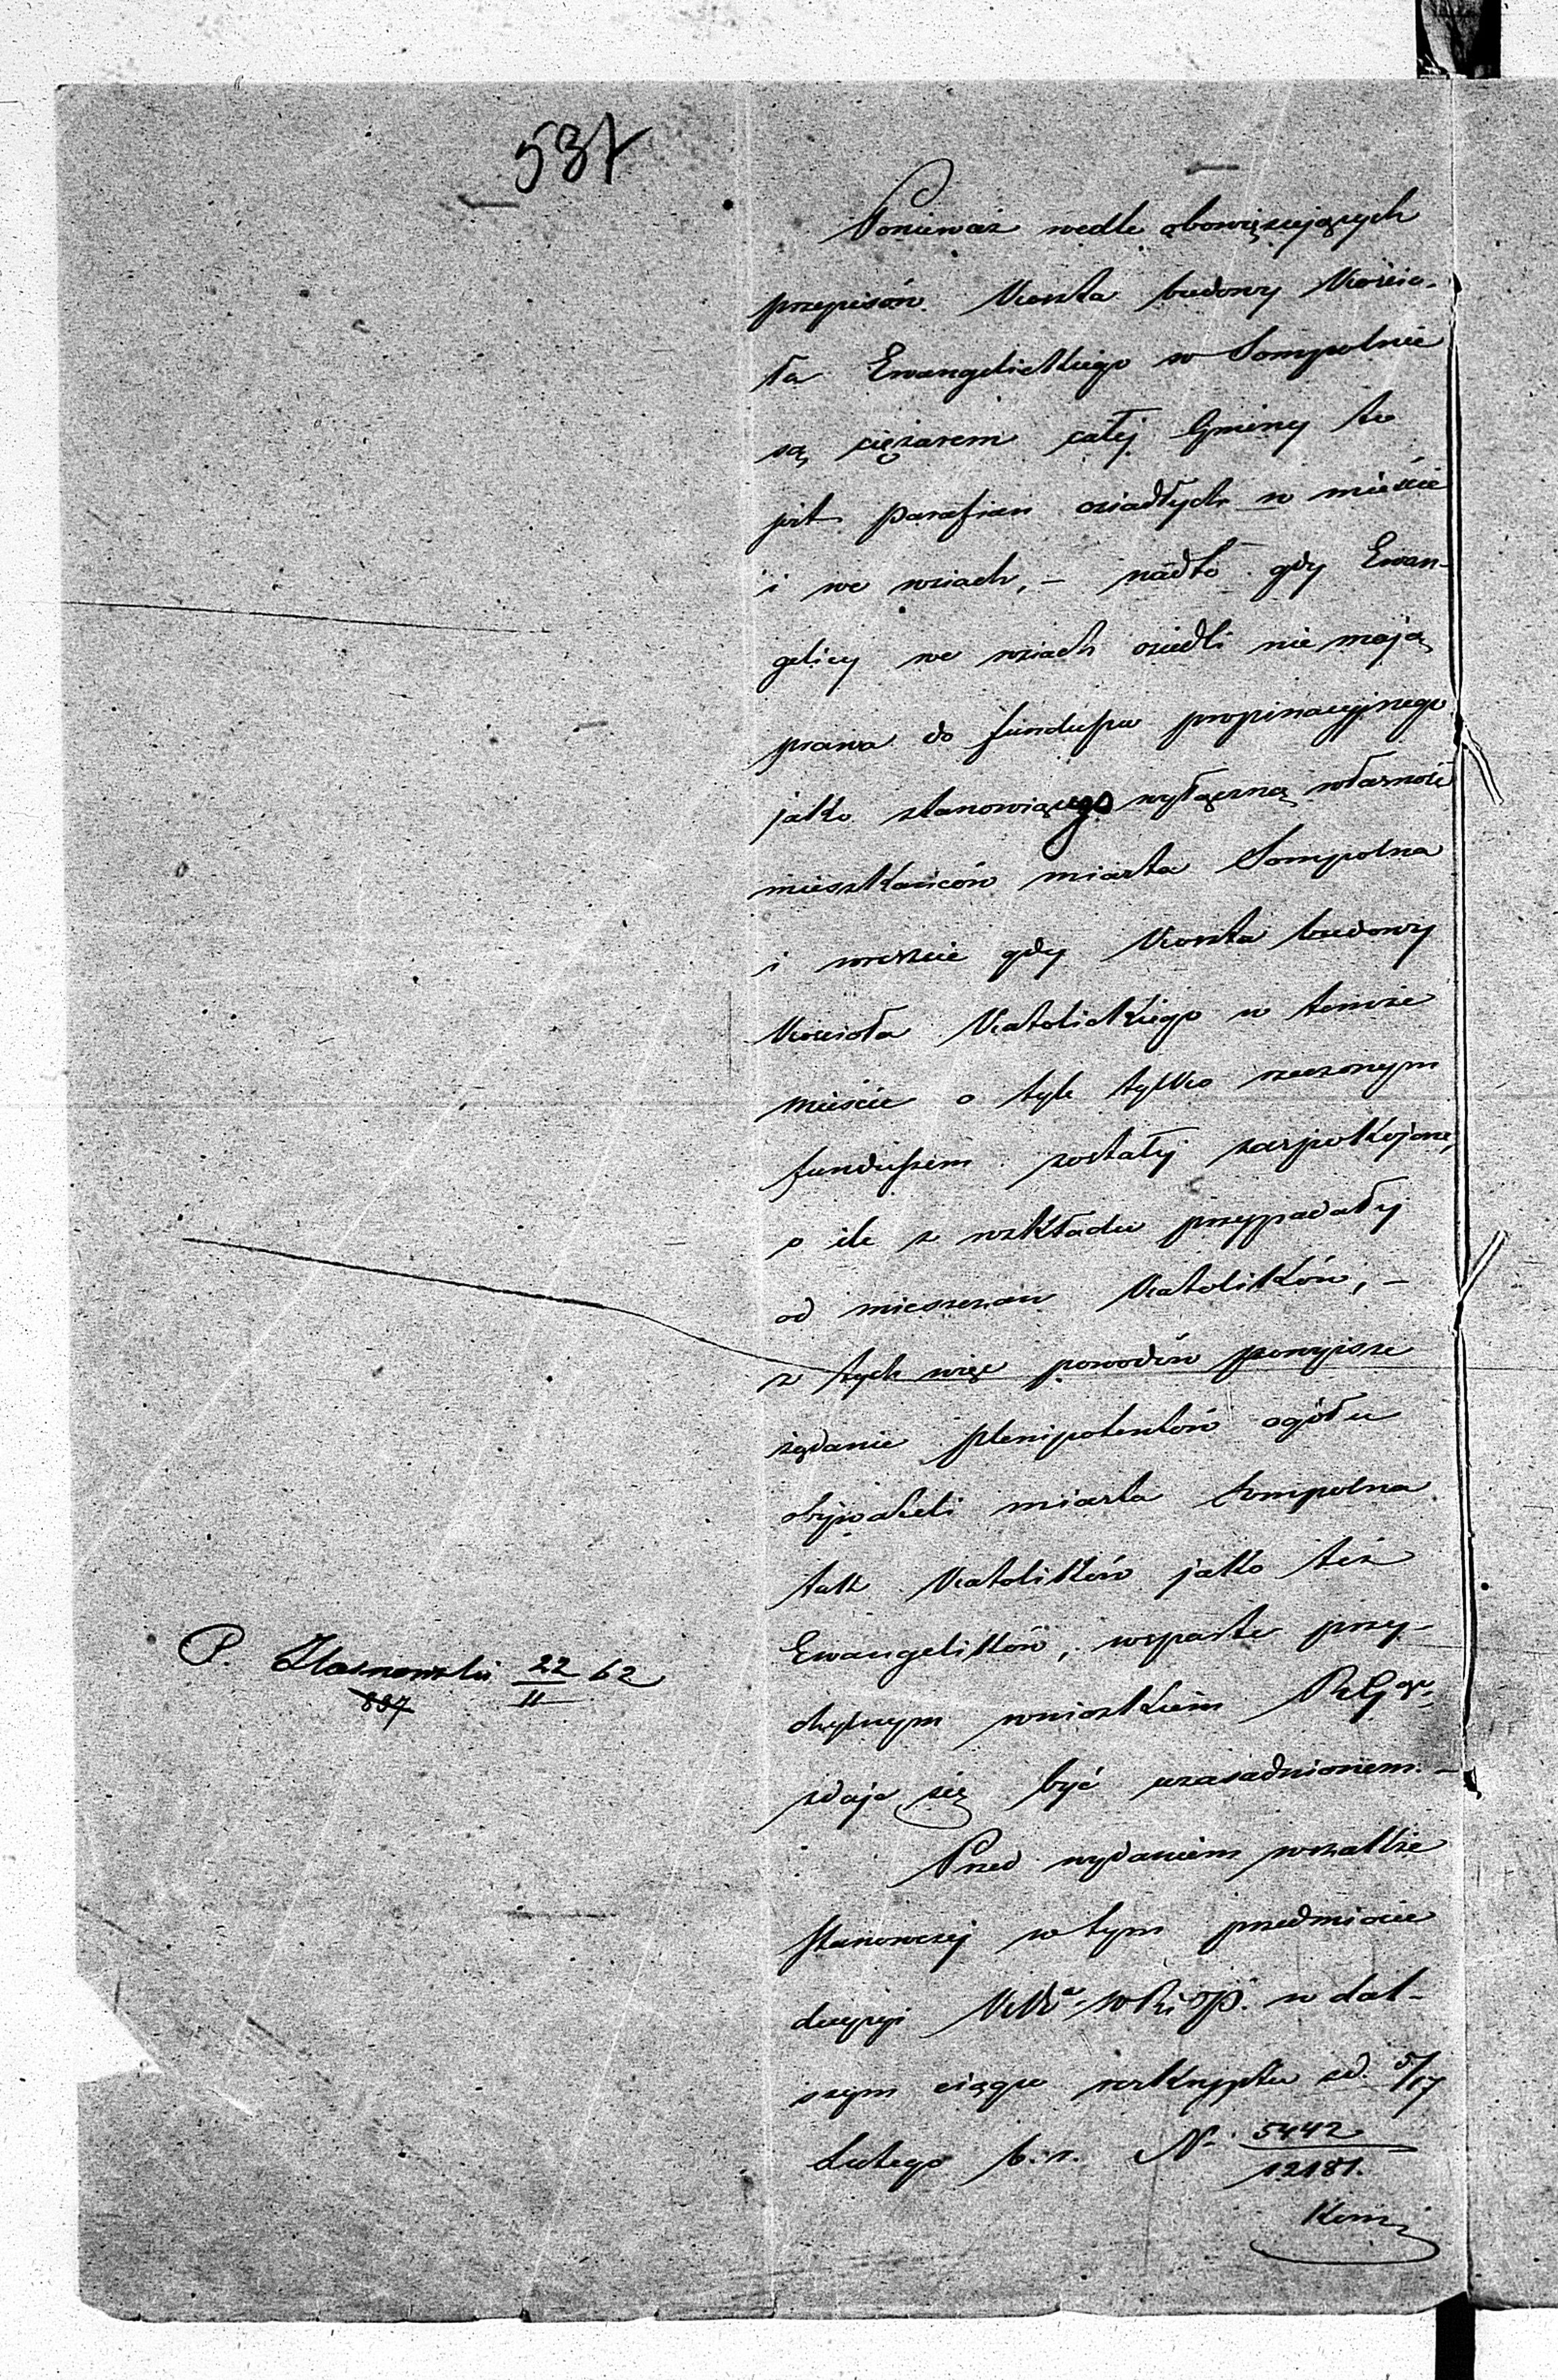 537
Ponieważ wedle obowięzujących
przepisów Koszta budowy Kościo-
ła Ewangelickiego w Sompolnie
są ciężarem całej Gminy to
jest parafian osiadłych w mieście
i we wsiach, – nadto gdy Ewan-
gelicy we wsiach osiedli nie mają
prawa do funduszu propinacyjnego
jako stanowiącego wyłączną własność
mieszkańców miasta Sompolna
i wreszcie gdy Koszta budowy
Kościoła Katolickiego w temże
mieście o tyle tylko rzeczonym
funduszem zostały zaspokojone,
o ile z rozkładu przypadały
od mieszczan Katolików, –
z tych więc powodów powyższe
żądanie plenipotentów ogółu
obywateli miasta Sompolna
tak Katolików jako też
Ewangelików, wsparte przy-
chylnym wnioskiem RzGgo
zdaje się być uzasadnionem. –
Przed wydaniem wszakże
stanowczej w tym przedmiocie
decyzyi w dal-
szym ciągu reskryptu zd. 5/17
Lutego b. r. N. 5442/12181.
Kom
P. 22/11 62
897